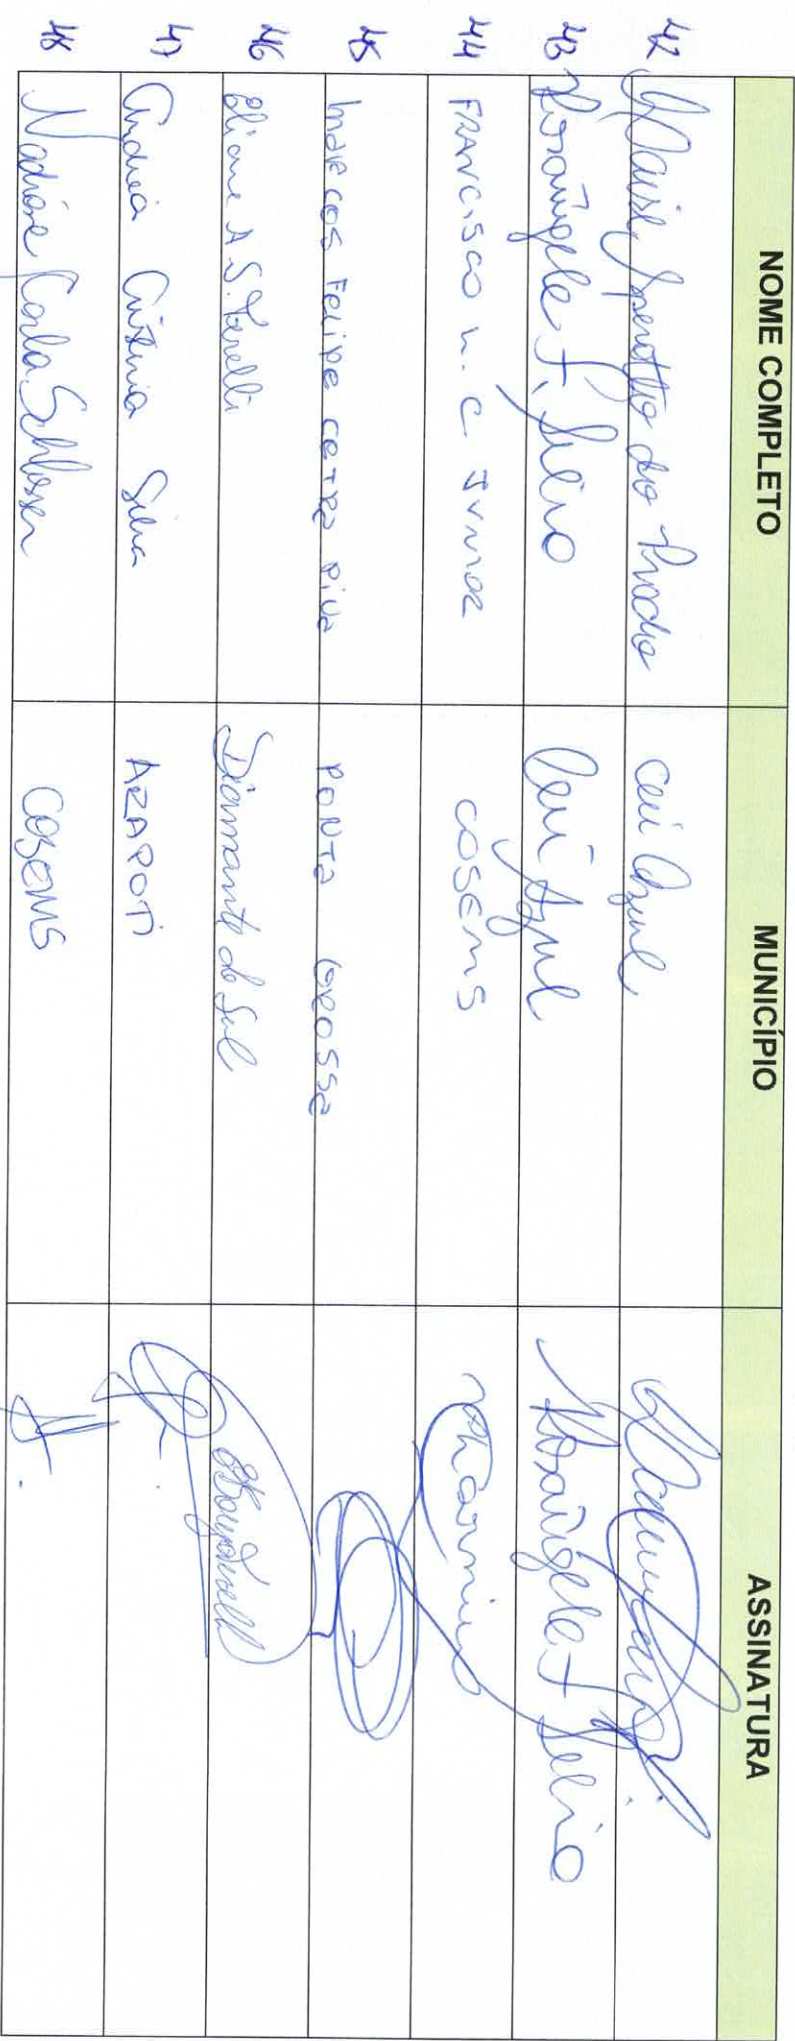 NOME COMPLETO MUNICÍPIO ASSINATURA
42 Sperotto do Prado Céu Azul
43 Rosangela F. Silvio Céu Azul Rosangela F Silvio
44 FRANCISCO N. C JUNIOR COSEMS
45 MARCOS FELIPE CETRA PIVA PONTA GROSSA
46 Eliane A. S. Diamante do Sul
47 Andreia Cristina Silva ARAPOTI
48 Nadiane Carla Schlosser COSEMS